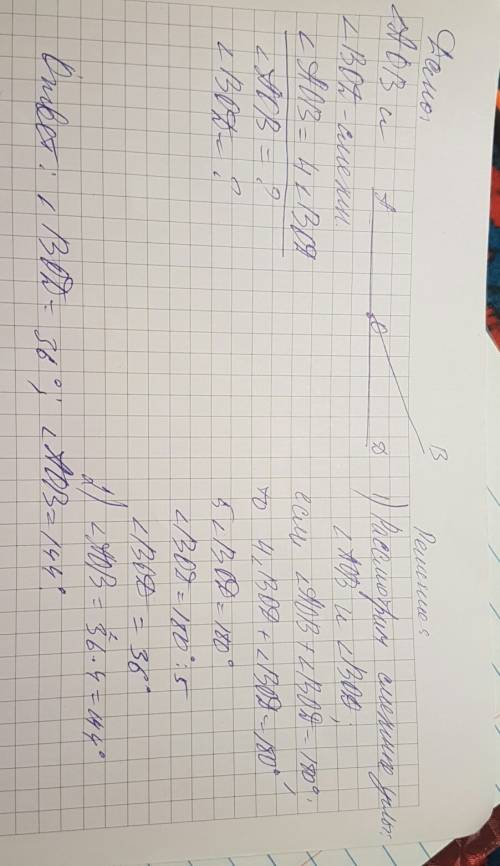 Дано:
∠AOB и
∠BOD - смежн.
∠AOB = 4∠BOD
∠AOB = ?
∠BOD = ?
A
O
D
B
Решение:
1) Рассмотрим смежные углы:
∠AOB и ∠BOD;
если ∠AOB + ∠BOD = 180°,
то 4∠BOD + ∠BOD = 180°
5∠BOD = 180°
∠BOD = 180° : 5
∠BOD = 36°
2) ∠AOB = 36 · 4 = 144°
Ответ: ∠BOD = 36°; ∠AOB = 144°